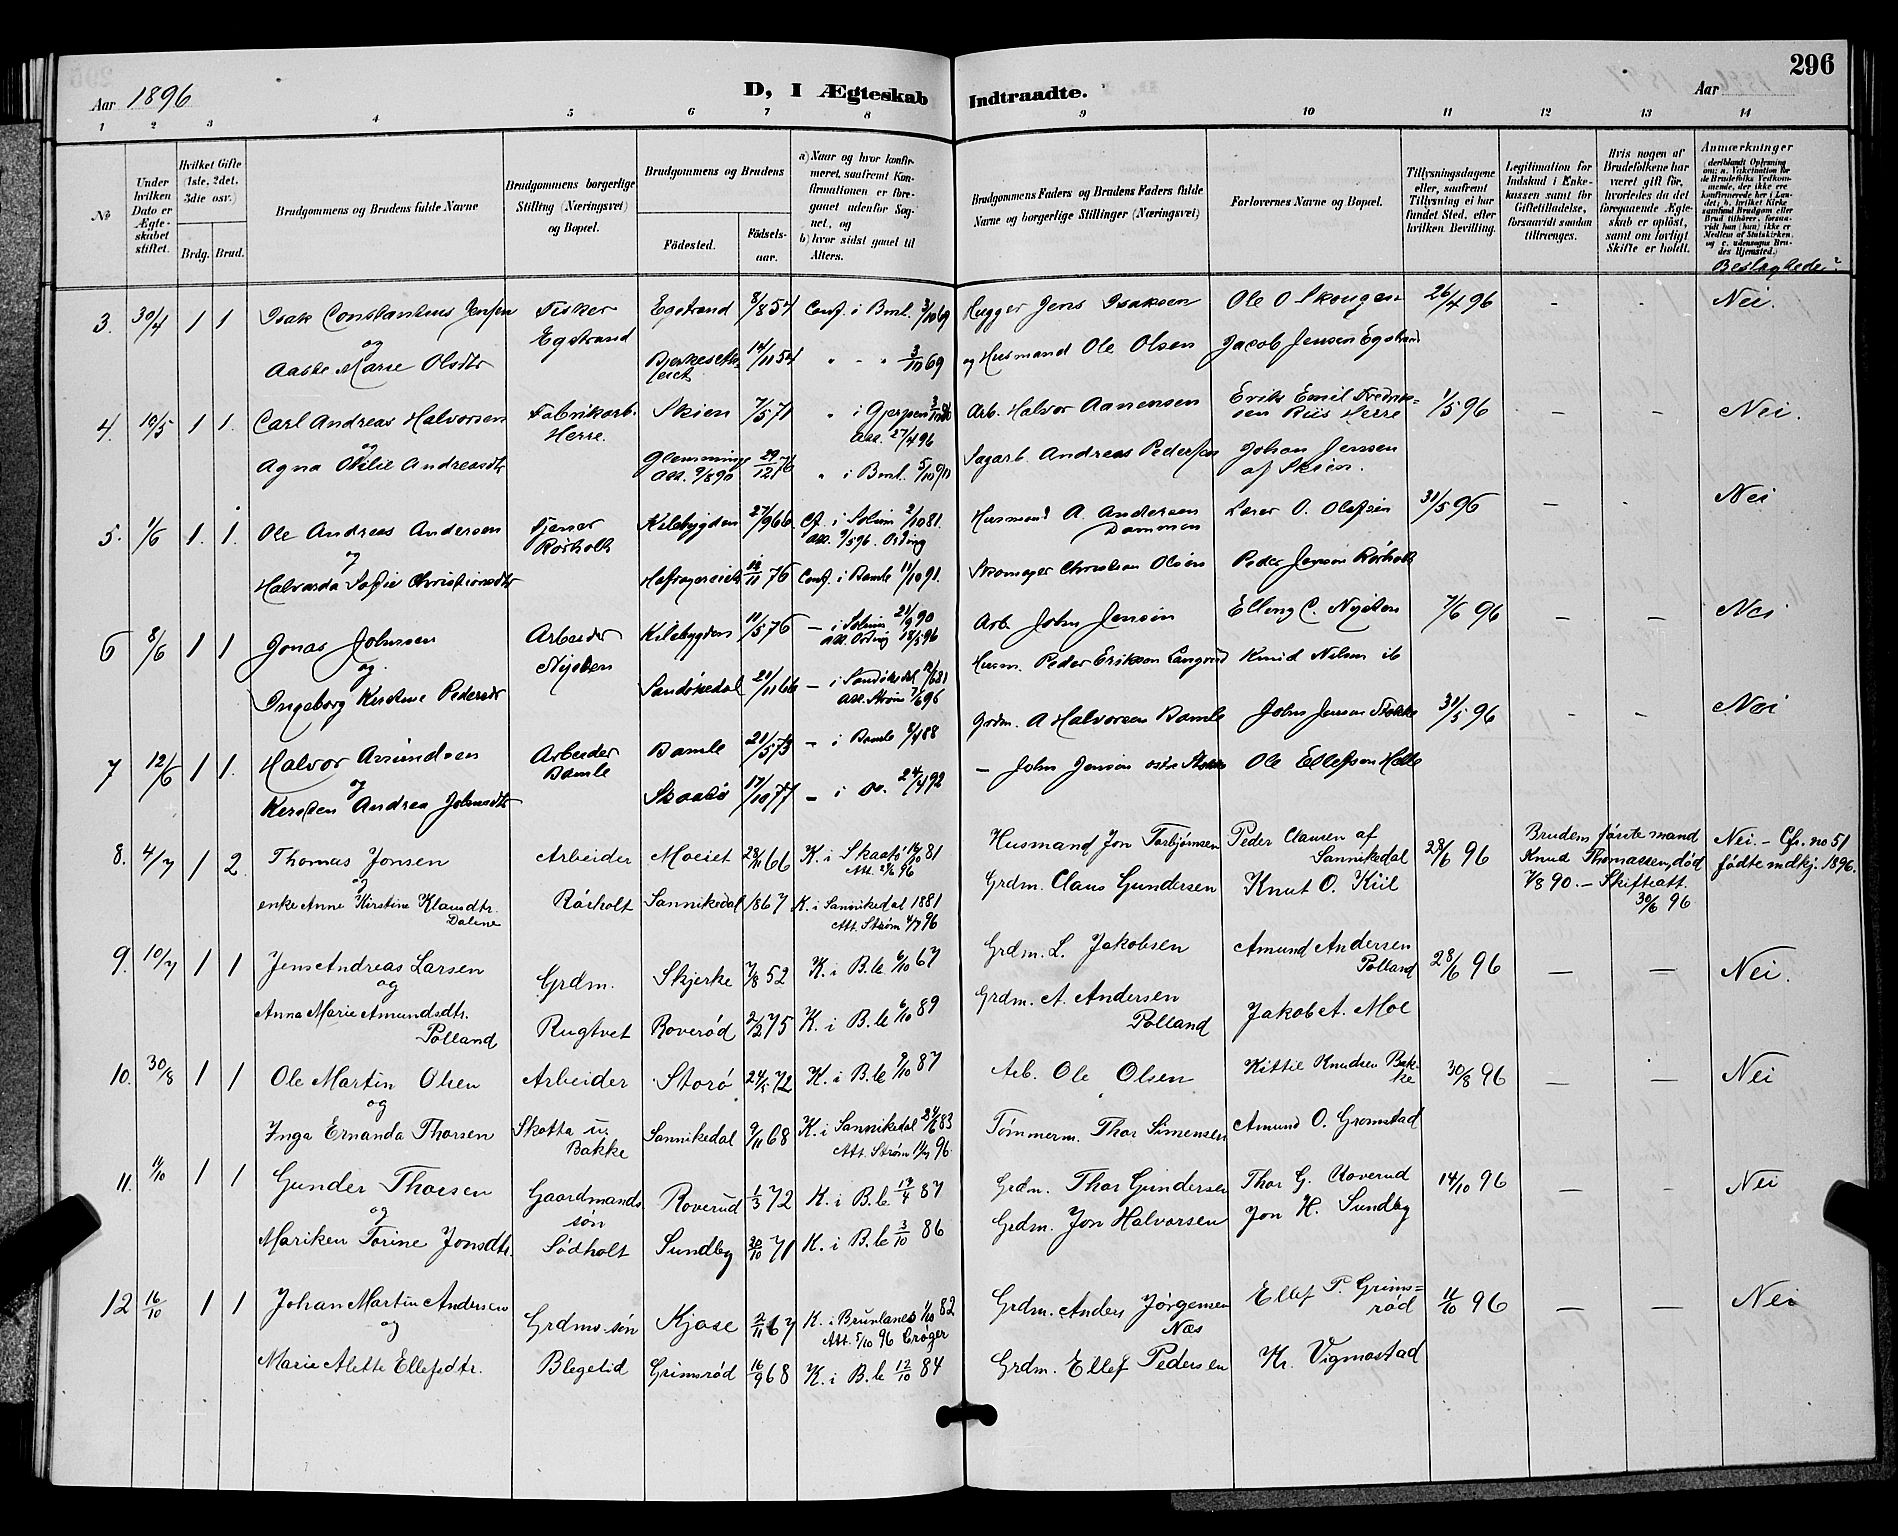 Aar 1896
D, I Ægteskab Indtraadte.
Aar
296
1 2 3 4 5 6 7 8 9 10 11 12 13 14
No
Under hvilken Dato er Ægteskabet stiftet.
Hvilket Gifte (1ste, 2det, 3die osv.)
Brdg. Brud.
Brudgommens og Brudens fulde Navne
Brudgommens borgerlige Stilling (Næringsvei) og Bopæl.
Brudgommens og Brudens
Fødested.
Fødsels-aar.
a) Naar og hvor konfirmeret, saafremt Konfirmationen er foregaaet udenfor Sognet, og
b) hvor sidst gaaet til Alters.
Brudgommens Faders og Brudens Faders fulde Navne og borgerlige Stillinger (Næringsvei)
Forlovernes Navne og Bopæl.
Tillysningsdagene eller, saafremt Tillysning ei har fundet Sted, efter hvilken Bevilling.
Legitimation for Indskud i Enkekassen samt for Giftetilladelse, forsaavidt saadan tiltrænges.
Hvis nogen af Brudefolkene har været gift før, hvorledes da det foregaaende Ægteskab er opløst, samt om lovligt Skifte er holdt.
Anmærkninger
Beslægtede?
3. 30/4 1 1 Isak Constantius Jensen Fisker Egstrand 8/8 54 Conf. i Bml. 3/10 69 Hugger Jens Isaksen Ole O Skougen 26/4 96 - - Nei.
og Egstrand
Aaste Marie Olsdtr 14/11 54 " - " 3/10 69 og Husmand Ole Olsen Jacob Jensen Egstrand
4. 10/5 1 1. Carl Andreas Halvorsen Fabrikarb. Skien 7/5 71 " i Gjerpen Arb. Halvor Aanensen Eriks Emil Fredriksen Riis Herre 1/5 96 - - Nei.
og Herre. Att. 27/4 96
Agna Otilie Andreasdtr Glemminge Att. 9/8 90 29/12 76 " i Bml. Sagarb. Andreas Pedersen Johan Jensen af Skien.
5. 1/6 1. 1. Ole Andreas Andersen Tjener Kilebygden 27/9 66 Cf. i Solum 2/10 81. Husmand A. Andersen Dammen Lærer O. Olafsen 31/5 96 - - Nei
og Rørholt
Halvarda Sofie Christiansdtr 76 Conf. i Bamle 11/10 91. Skomager Christian Olsen Peder Jensen Rørholt
6 8/6 1 1 Jonas Johnsen Arbeider Kilebygden 11/5 76 - i Solum 21/9 90 Arb. John Jensen Elling C. 7/6 96 - - Nei
og
Ingeborg Kirstine Pedersdtr Sandøkedal 21/11 66 - i Sandøkedal Husm. Peder Eriksen Langrød Knud Nilsen ib
7 12/6 1 1. Halvor Amundsen Arbeider Bamle Bamle 21/5 73 - i Bamle Grdm. A Halvorsen Bamle John Jensen Stokke 31/5 96 - - Nei
og
Kirsten Andrea Johnsdtr Skaatø 17/10 77 - i do. 24/4 92 - John Jensen Ole Ellefsen Helle
8. 4/7 1 2. Thomas Jonsen Arbeider Moeiet 28/11 66 K. i Skaatø Husmand Jon Torbjørnsen Peder Clausen af Sannikedal 28/6 96 Brudens første mand Nei. - Cfr. no 51
og Knud Thomassen, død fødte mdkj. 1896.
enke Anne Kirstine Klausdtr. Dalene Rørholt Sannikedal 1867 K. i Sannikedal 1881 Att. Strøm 4/7 96 Grdm. Claus Gundersen Knut O. Kiil 7/8 90. - Skifteatt. 30/6 96
9. 10/7 1 1 Jens Andreas Larsen Grdm. Skjerke 7/8 52 K. i B.le 6/10 67 Grdm. L. Jakobsen Amund Andersen Polland 28/6 96 - - Nei.
og
Anna Marie Amundsdtr. Polland Rugtvet Roverød 2/2 75 K. i B.le 6/10 89 Grdm. A. Andersen Polland Jakob A. Moe
10. 30/8 1 1 Ole Martin Olsen Arbeider Storø 72 K. i B.le 9/10 87 Arb. Ole Olsen Kittil Knudsen Bakke 30/8 96 - - Nei
og
Inga Ernanda Thorsen Skotta u. Bakke Sannikedal 9/11 68 K. i Sannikedal 83 Att. Strøm 96. Tømmerm. Thor Simensen Amund O. Gromstad
11. 11/10 1 1 Gunder Thorsen Gaardmands søn Roverud 1/3 72 K. i B.le 17/4 87 Grdm. Thor Gundersen Thor G. Roverud 14/10 96 - - Nei
og
Mariken Torine Jonsdtr. Sødholt Sundby 30/10 71 K. i B.le 3/10 86 Grdm. Jon Halvorsen Jon H. Sundby
12 16/10 1 1 Johan Martin Andersen Grdms. søn Kjose 2/11 67 K. i Brunlanes 1/10 82 Att. 5/10 96 Crøger Grdm. Anders Jørgensen Næs Ellef P. Grimsrød 11/10 96 - - Nei
og
Marie Alette Ellefsdtr. Blegelid Grimsrød 16/9 68 K. i B.le 12/10 84 Grdm. Ellef Pedersen Kr. Vigmostad